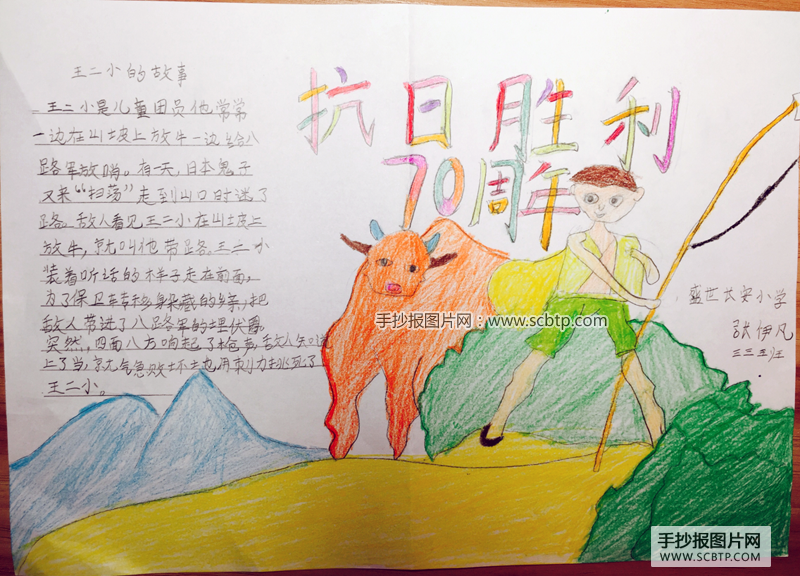 王二小的故事
王二小是儿童团员他常常
一边在山坡上放牛一边给八
路军放哨。有一天,日本鬼子
又来“扫荡”走到山口时迷了
路。敌人看见王二小在山坡上
放牛,就叫他带路。王二小
装着听话的样子走在前面,
为了保卫转移躲藏的乡亲,把
敌人带进了八路军的埋伏圈
突然,四面八方响起了枪声,敌人知道
上了当,就气急败坏地用刺刀挑死了
王二小。
抗日胜利
70周年
盛世长安小学
张伊凡
三三班
手抄报图片网:www.scbtp.com
手抄报图片网
WWW.SCBTP.COM